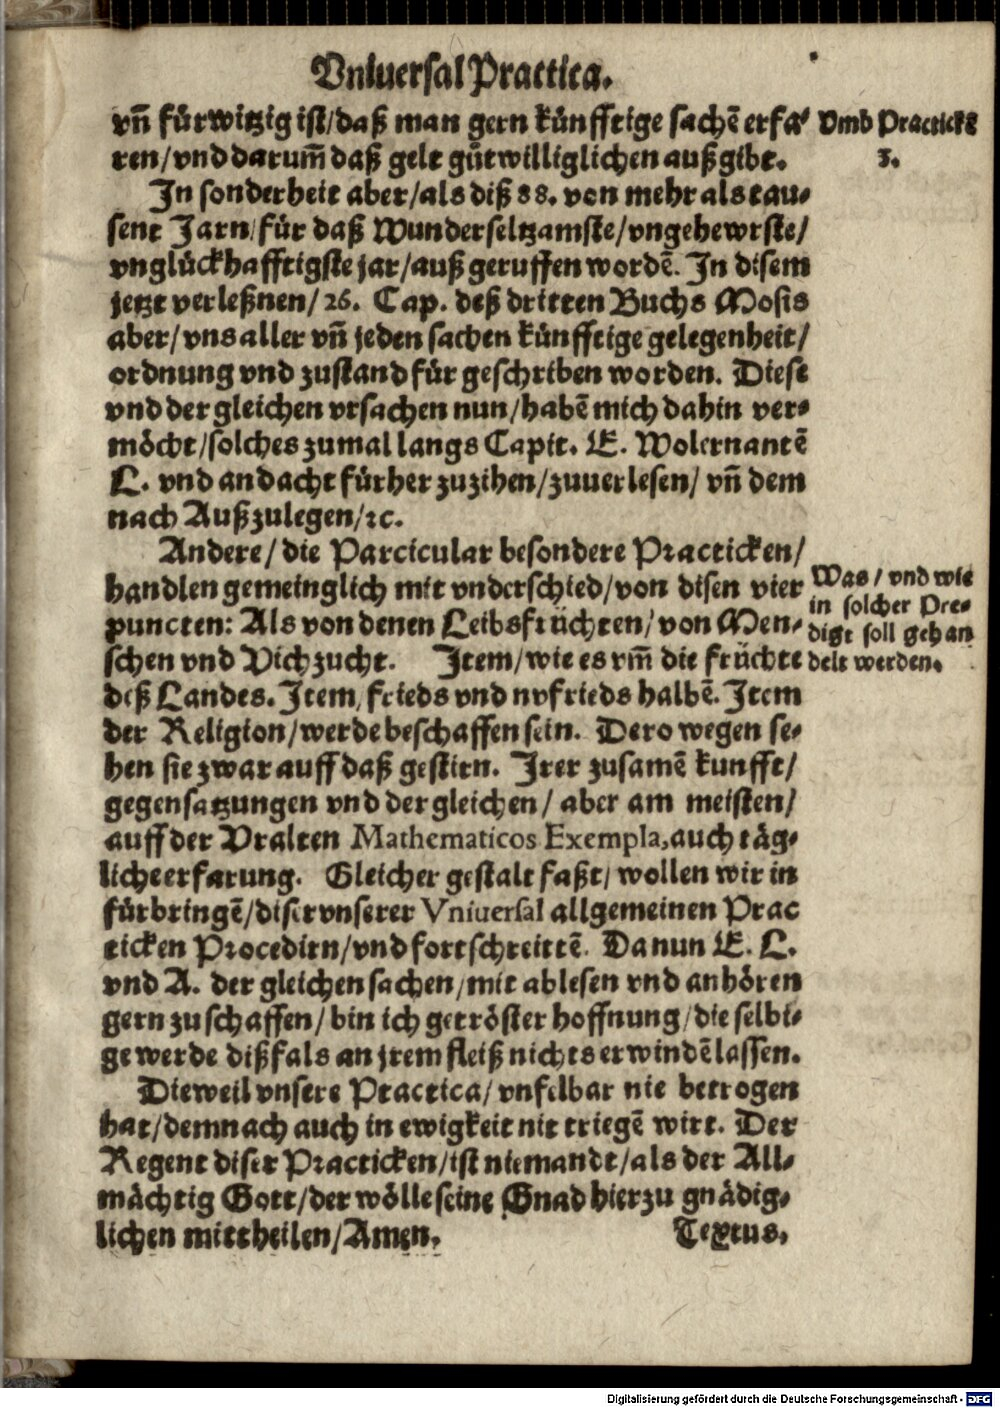 Vniuersal Practica.
vñ fürwitzig ist/daß man gern künfftige sachē erfa-
ren/vnd darum̃ daß gelt gůtwilliglichen außgibt.
Vmb Practicks
3.
In sonderheit aber/als diß 88. von mehr als tau-
sent Jarn/für daß Wunderseltzamste/vngehewrste/
vnglückhafftigste jar/auß geruffen wordē. In disem
jetzt verleßnen/26. Cap. deß dritten Buchs Mosis
aber/vns aller vñ jeden sachen künfftige gelegenheit/
ordnung vnd zustand für geschriben worden. Diese
vnd der gleichen vrsachen nun/habē mich dahin ver-
möcht/solches zumal langs Capit. E. Wolernantē
L. vnd andacht fürher zuzihen/zuuerlesen/vñ dem
nach Außzulegen/ꝛc.
Andere/die Parcicular besondere Practicken/
handlen gemeinglich mit vnderschied/von disen vier
puncten: Als von denen Leibsfrüchten/von Men-
schen vnd Vichzucht. Item/wie es vm̃ die früchte
deß Landes. Item/frieds vnd nvfrieds halbē. Item
der Religion/werde beschaffen sein. Dero wegen se-
hen sie zwar auff daß gestirn. Irer zusamē kunfft/
gegensatzungen vnd der gleichen/aber am meisten/
auff der Vralten Mathematicos Exempla, auch täg-
liche erfarung. Gleicher gestalt faßt/wollen wir in
fürbringē/diser vnserer Vniuersal allgemeinen Prac
ticken Procedirn/vnd fortschreittē. Da nun E. L.
vnd A. der gleichen sachen/mit ablesen vnd anhören
gern zuschaffen/bin ich getröster hoffnung/die selbi-
ge werde dißfals an jrem fleiß nichts erwindē lassen.
Was/vnd wie
in solcher Pre-
digt soll gehan
delt werden.
Dieweil vnsere Practica/vnfelbar nie betrogen
hat/demnach auch in ewigkeit nit triegē wirt. Der
Regent diser Practicken/ist niemandt/als der All-
mächtig Gott/der wölle seine Gnad hierzu gnädig-
lichen mittheilen/Amen.
Textus.
Digitalisierung gefördert durch die Deutsche Forschungsgemeinschaft - DFG